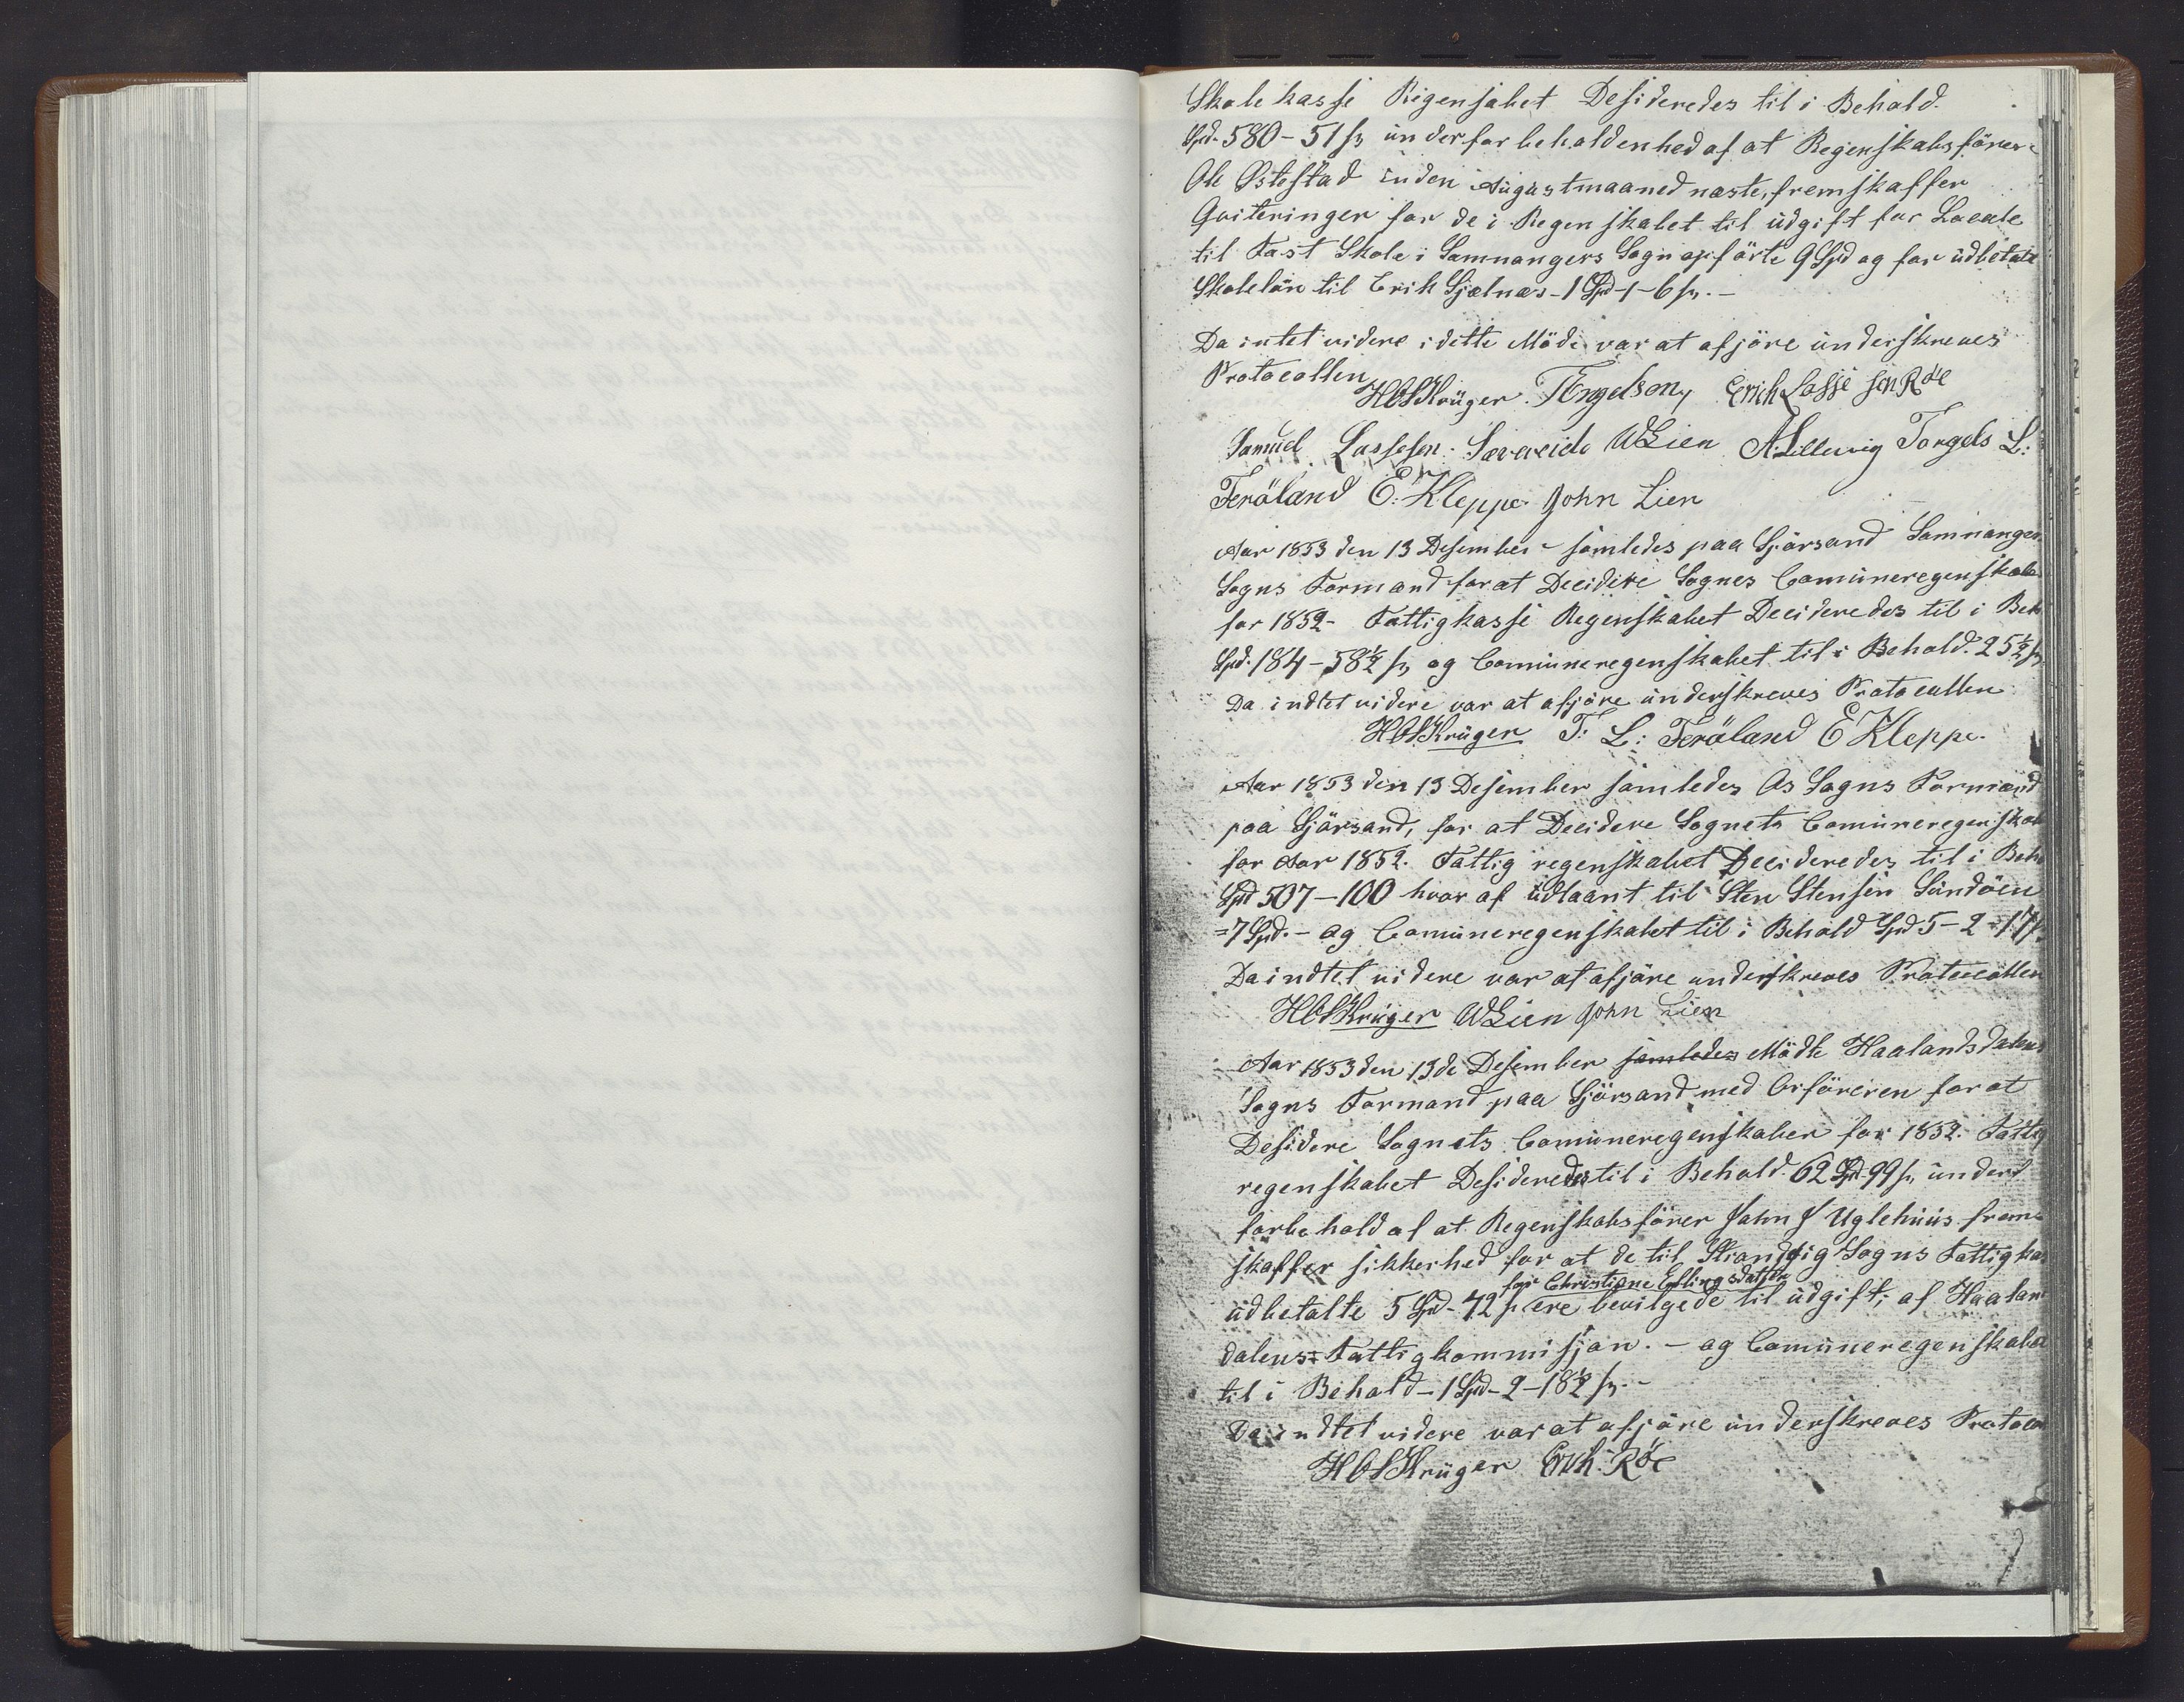 Skole kasse Regenskabet Desideredes til i Behold.
Spd. 580-51 s, underforbeholdenhed af at Regenskabsförer
Ole Østestad inden Augustmaaned næste, fremskaffer
Qviteringer for de i Regenskabet til udgift for Locale
til Fast Skole i Samnangers Sogn opförte 9 Spd og for udbetalt
Skolelön til Erik Gjelnæs - 1 Spd - 1 - 6 s. -
Da intet videre i dette Möde var at afjöre underskreves
Protocollen
HOSKrüger. TEngelsen, Erich Lasse sen Röe
Samuel Lassesen. Sævareide WLien A Lillevig Torgels L:
Teröland E. Kleppe. John Lien
Aar 1853 den 13 Desember samledes paa Gjörsand Samnanger
Sogns Formand for at Decidere Sognes Comuneregenskab
for 1852 - Fattigkasse Regenskabet Decideredes til i Beh
Spd. 184 - 58½ s, og Comuneregenskabet til i Behold. 2 5½ s
Da indtet videre var at afjöre underskreves Protocollen
HOSKrüger T: L: Teröland E Kleppe.
Aar 1853 den 13 Desember samledes Os Sogns Formænd
paa Gjörsand, for at Decidere Sognets Comuneregenskab
for Aar 1852. Fattig regenskabet Decideredes til i Beho
Spd 507 - 100 hvor af udlaant til Sten Stensen Sundöen
= 7 Spd. - og Comuneregenskabet til i Behold Spd 5 - 2 - 17 s.
Da indtet videre var at afjöre underskreves Protocollen
HOSKrüger WLien John Lien
Aar 1853 den 13de Desember samledes Mödte Haalandsdalens
Sogns Formand paa Gjörsand med Orföreren for at
Desidere Sognets Comuneregenskaber for 1852. Fattig
regenskabet Desideredes til i Behold. 62 Spd 99 s, under
forbehold af at Regenskabsförer John J Uglehuus frem-
skaffer sikkerhed for at de til Strandvig Sogns Fattigkas
for Christiane Erlingsdatter
udbetalte 5 Spd - 72 s ere bevilgede til udgift, af Haalan
dalens Fattigkommisjon. - og Comuneregenskabet
til i Behold - 1 Spd - 2 - 18½ s. -
Da indtet videre var at afjöre underskreves Protocol
HOSKrüger Erich. Röe